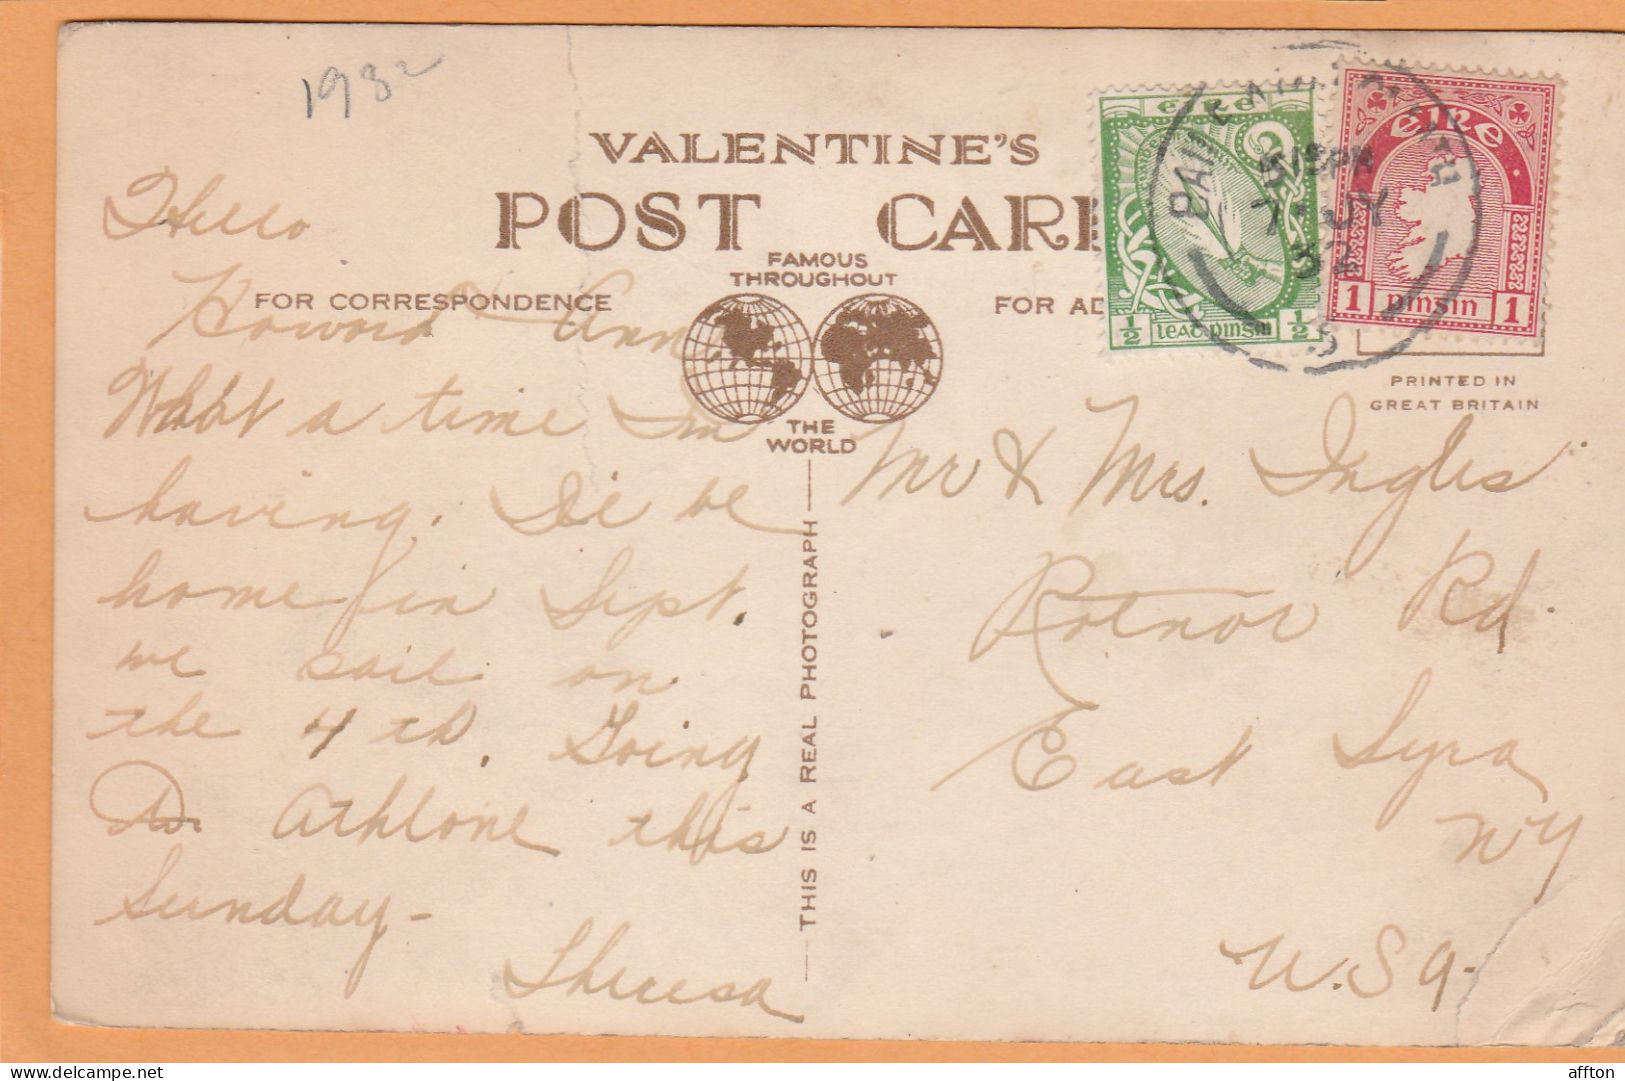 1932
VALENTINE'S
POST CARD
FAMOUS
THROUGHOUT
THE
WORLD
FOR CORRESPONDENCE
FOR AD
PRINTED IN
GREAT BRITAIN
THIS IS A REAL PHOTOGRAPH
éire
1/2 leat pinsin 1/2
éire
1 pinsin 1
515PM
7 JY
32
Hello
Howard Ann
What a time Im
having. I'll be
home in Sept.
we sail on
the 4 th. Going
to Athlone this
Sunday -
Theresa
Mr & Mrs. Ingles
Rd
East Syra
NY
U.S.A.
affton